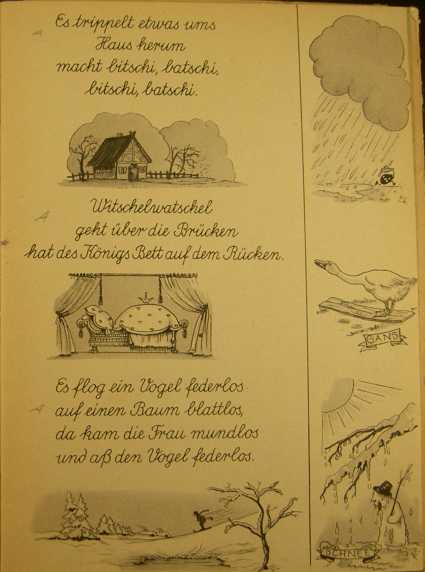 Es trippelt etwas ums
Haus herum
macht bitschi, batschi,
bitschi, batschi.
Witschelwatschel
geht über die Brücken
hat des Königs Bett auf dem Rücken.
GANS
Es flog ein Vogel federlos
auf einen Baum blattlos,
da kam die Frau mundlos
und aß den Vogel federlos.
SCHNEE